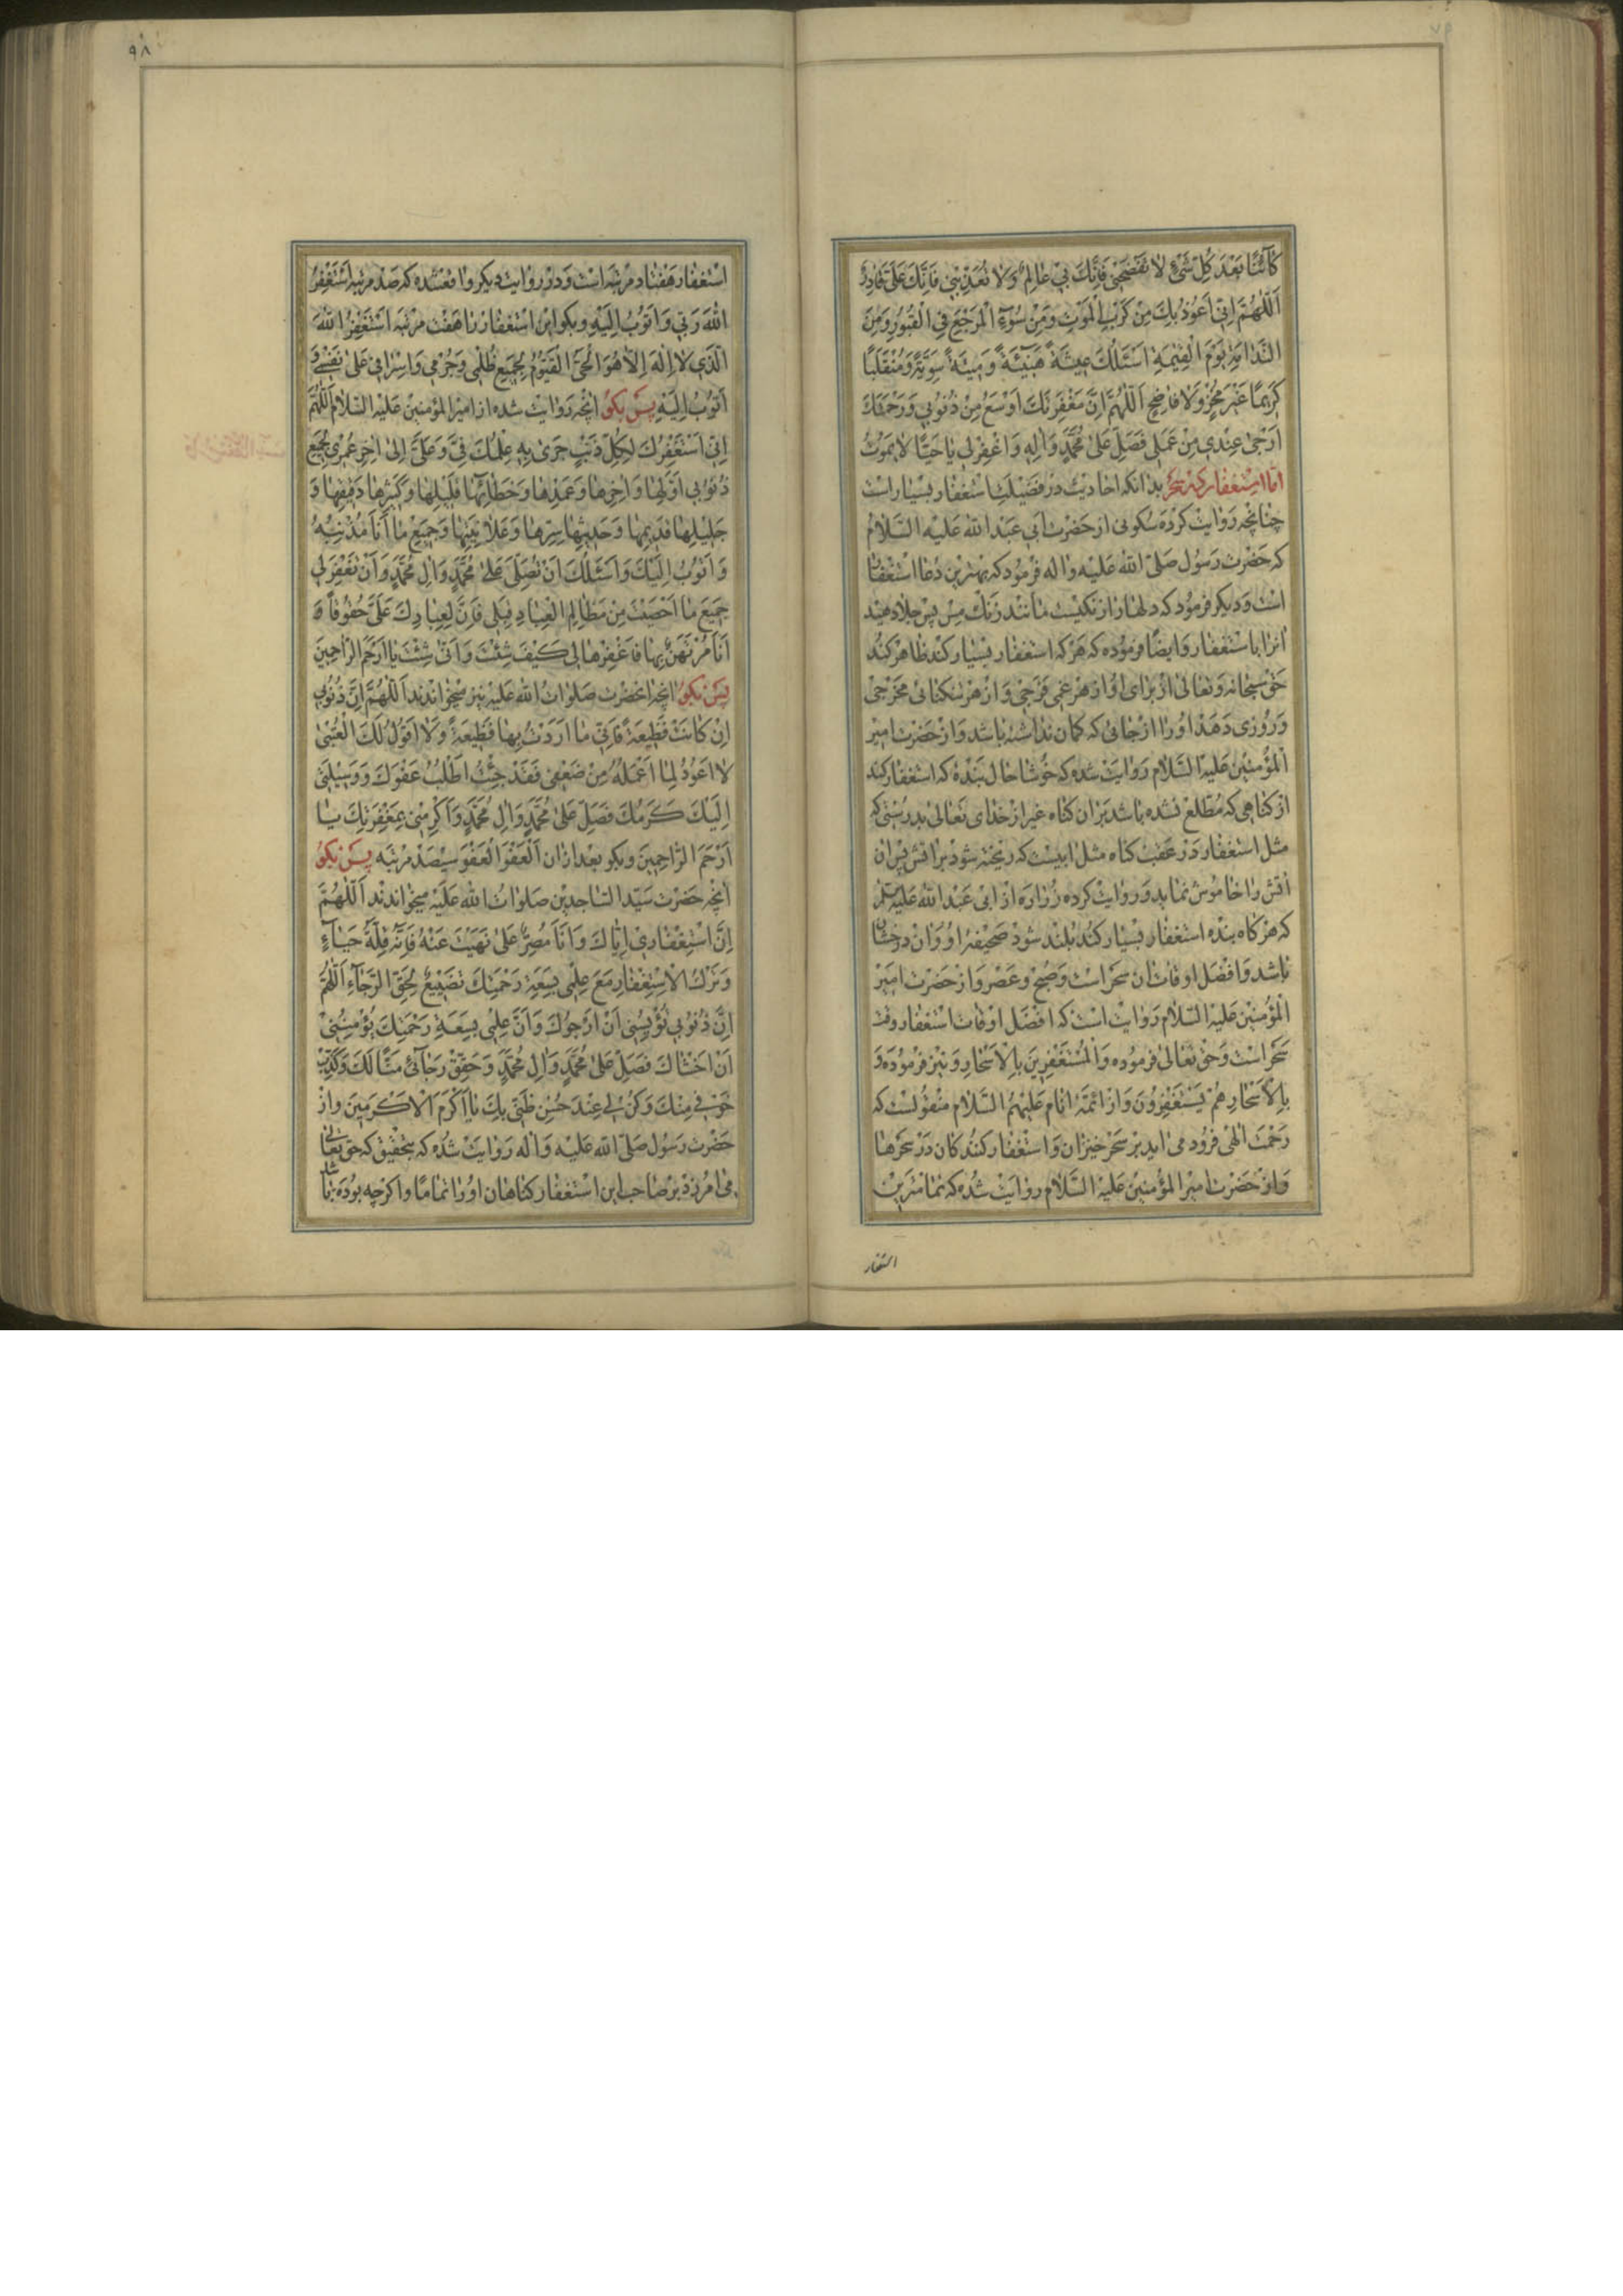 كَآئِنًا بَعْدَ كُلِّ شَيْءٍ لا تَفْضَحْنِي فَإِنَّكَ بِي عَالِمٌ وَلا تُعَذِّبْنِي فَإِنَّكَ عَلَيَّ قَادِرٌ
اَللّٰهُمَّ اِنِّي اَعُوذُ بِكَ مِنْ كَرْبِ الْمَوْتِ وَمِنْ سُوٓءِ الْمَرْجَعِ فِي الْقُبُورِ وَمِنَ
النَّدَامَةِ يَوْمَ الْقِيٰمَةِ اَسْئَلُكَ عِيشَةً هَنِيٓئَةً وَمِيتَةً سَوِيَّةً وَمُنْقَلَبًا
كَرِيمًا غَيْرَ مُخْزٍ وَلا فَاضِحٍ اَللّٰهُمَّ اِنَّ مَغْفِرَتَكَ اَوْسَعُ مِنْ ذُنُوبِي وَرَحْمَتَكَ
اَرْجىٰ عِنْدِي مِنْ عَمَلِي فَصَلِّ عَلىٰ مُحَمَّدٍ وَاٰلِهِ وَاغْفِرْ لِي يَا حَيًّا لا يَمُوتُ
امّا استغفار كردن سحر بدانکه احادیث در فضیلت استغفار بسیار است
چنانچه روایت کرده سکونی از حضرت ابی عبد الله علیه السلام
که حضرت رسول صلّی الله علیه واله فرمود که بهترین دعا استغفار
است و دیکر فرمود که دلها را زنکیست مانند زنك مس پس جلا دهید
انرا باستغفار وایضا فرموده که هرکه استغفار بسیار کند ظاهر کند
حق سبحانه وتعالی از برای او از هر غمی فرجی و از هر تنکنائی مخرجی
و روزی دهد او را از جائی که کمان نداشته باشد و از حضرت امیر
المؤمنین علیه السّلام روایت شده که خوشا حال بنده که استغفار کند
از کناهی که مطّلع نشده باشد بران کناه غیر از خدای تعالی بدرستی که
مثل استغفار در عقب کناه مثل ابیست که ریخته شود بر اتش پس ان
اتش را خاموش نماید و روایت کرده زراره از ابی عبد الله علیه السلم
که هرکاه بنده استغفار بسیار کند بلند شود صحیفهٔ او و ان درخشان
باشد و افضل اوقات ان سحر است و صبح و عصر و از حضرت امیر
المؤمنین علیه السّلام روایت است که افضل اوقات استغفار وقت
سحر است و حق تعالی فرموده وَالْمُسْتَغْفِرِينَ بِالْاَسْحَارِ و نیز فرموده وَ
بِالْاَسْحَارِ هُمْ يَسْتَغْفِرُونَ و از ائمّهٔ انام علیهم السّلام منقولست که
رحمت الهی فرود می اید بر سحر خیزان و استغفار کنندکان در سحرها
و از حضرت امیر المؤمنین علیه السّلام روایت شده که تمامترین
استغفار
۹۸
استغفار هفتاد مرتبه است و در روایت دیکر واقع شده که صد مرتبه اَسْتَغْفِرُ
اللهَ رَبِّي وَاَتُوبُ اِلَيْهِ و بکو این استغفار را هفت مرتبه اَسْتَغْفِرُ اللهَ
الَّذِي لا اِلٰهَ اِلاّ هُوَ الْحَيُّ الْقَيُّومُ لِجَمِيعِ ظُلْمِي وَجُرْمِي وَاِسْرَافِي عَلىٰ نَفْسِي وَ
اَتُوبُ اِلَيْهِ پس بکو انچه روایت شده از امیر المؤمنین علیه السّلام اَللّٰهُمَّ
اِنِّي اَسْتَغْفِرُكَ لِكُلِّ ذَنْبٍ جَرىٰ بِهِ عِلْمُكَ فِيَّ وَعَلَيَّ اِلىٰ اٰخِرِ عُمْرِي بِجَمِيعِ
ذُنُوبِي اَوَّلِهَا وَاٰخِرِهَا وَعَمْدِهَا وَخَطَائِهَا قَلِيلِهَا وَكَثِيرِهَا دَقِيقِهَا وَ
جَلِيلِهَا قَدِيمِهَا وَحَدِيثِهَا سِرِّهَا وَعَلانِيَتِهَا وَجَمِيعِ مَا اَنَا مُذْنِبُهُ
وَاَتُوبُ اِلَيْكَ وَاَسْئَلُكَ اَنْ تُصَلِّيَ عَلىٰ مُحَمَّدٍ وَاٰلِ مُحَمَّدٍ وَاَنْ تَغْفِرَ لِي
جَمِيعَ مَا اَحْصَيْتَ مِنْ مَظَالِمِ الْعِبَادِ قِبَلِي فَاِنَّ لِعِبَادِكَ عَلَيَّ حُقُوقًا وَ
اَنَا مُرْتَهَنٌ بِهَا فَاغْفِرْهَا لِي كَيْفَ شِئْتَ وَاَنّىٰ شِئْتَ يَا اَرْحَمَ الرَّاحِمِينَ
پس بکو انچه انحضرت صلوات الله علیه نیز میخواندند اَللّٰهُمَّ اِنَّ ذُنُوبِي
اِنْ كَانَتْ فَظِيعَةً فَاِنِّي مَا اَرَدْتُ بِهَا قَطِيعَةً وَلا اَقُولُ لَكَ الْعُتْبىٰ
لا اَعُودُ لِمَا اَعْلَمُهُ مِنْ ضَعْفِي فَقَدْ جِئْتُ اَطْلُبُ عَفْوَكَ وَوَسِيلَتِي
اِلَيْكَ كَرَمُكَ فَصَلِّ عَلىٰ مُحَمَّدٍ وَاٰلِ مُحَمَّدٍ وَاَكْرِمْنِي بِمَغْفِرَتِكَ يَا
اَرْحَمَ الرَّاحِمِينَ و بکو بعد ازان اَلْعَفْوَ الْعَفْوَ سیصد مرتبه پس بکو
انچه حضرت سیّد السّاجدین صلوات الله علیه میخواندند اَللّٰهُمَّ
اِنَّ اسْتِغْفَارِي اِيَّاكَ وَاَنَا مُصِرٌّ عَلىٰ نَهَيْتَ عَنْهُ فَاِنَّهُ قِلَّةُ حَيَاءٍ
وَتَرْكَ الْاِسْتِغْفَارِ مَعَ عِلْمِي بِسَعَةِ رَحْمَتِكَ تَضْيِيعٌ لِحَقِّ الرَّجَاءِ اَللّٰهُمَّ
اِنَّ ذُنُوبِي تُؤْيِسُنِي اَنْ اَرْجُوَكَ وَاَنَّ عِلْمِي بِسَعَةِ رَحْمَتِكَ يُؤْمِنُنِي
اَنْ اَخْشَاكَ فَصَلِّ عَلىٰ مُحَمَّدٍ وَاٰلِ مُحَمَّدٍ وَحَقِّقْ رَجَآئِي لَكَ وَكَذِّبْ
خَوْفِي مِنْكَ وَكُنْ لِي عِنْدَ حُسْنِ ظَنِّي بِكَ يَا اَكْرَمَ الْاَكْرَمِينَ و از
حضرت رسول صلّی الله علیه واله روایت شده که بتحقیق که حق تعالی
می امرزد بر صاحب این استغفار کناهان او را تماما و اکرچه بوده باشد